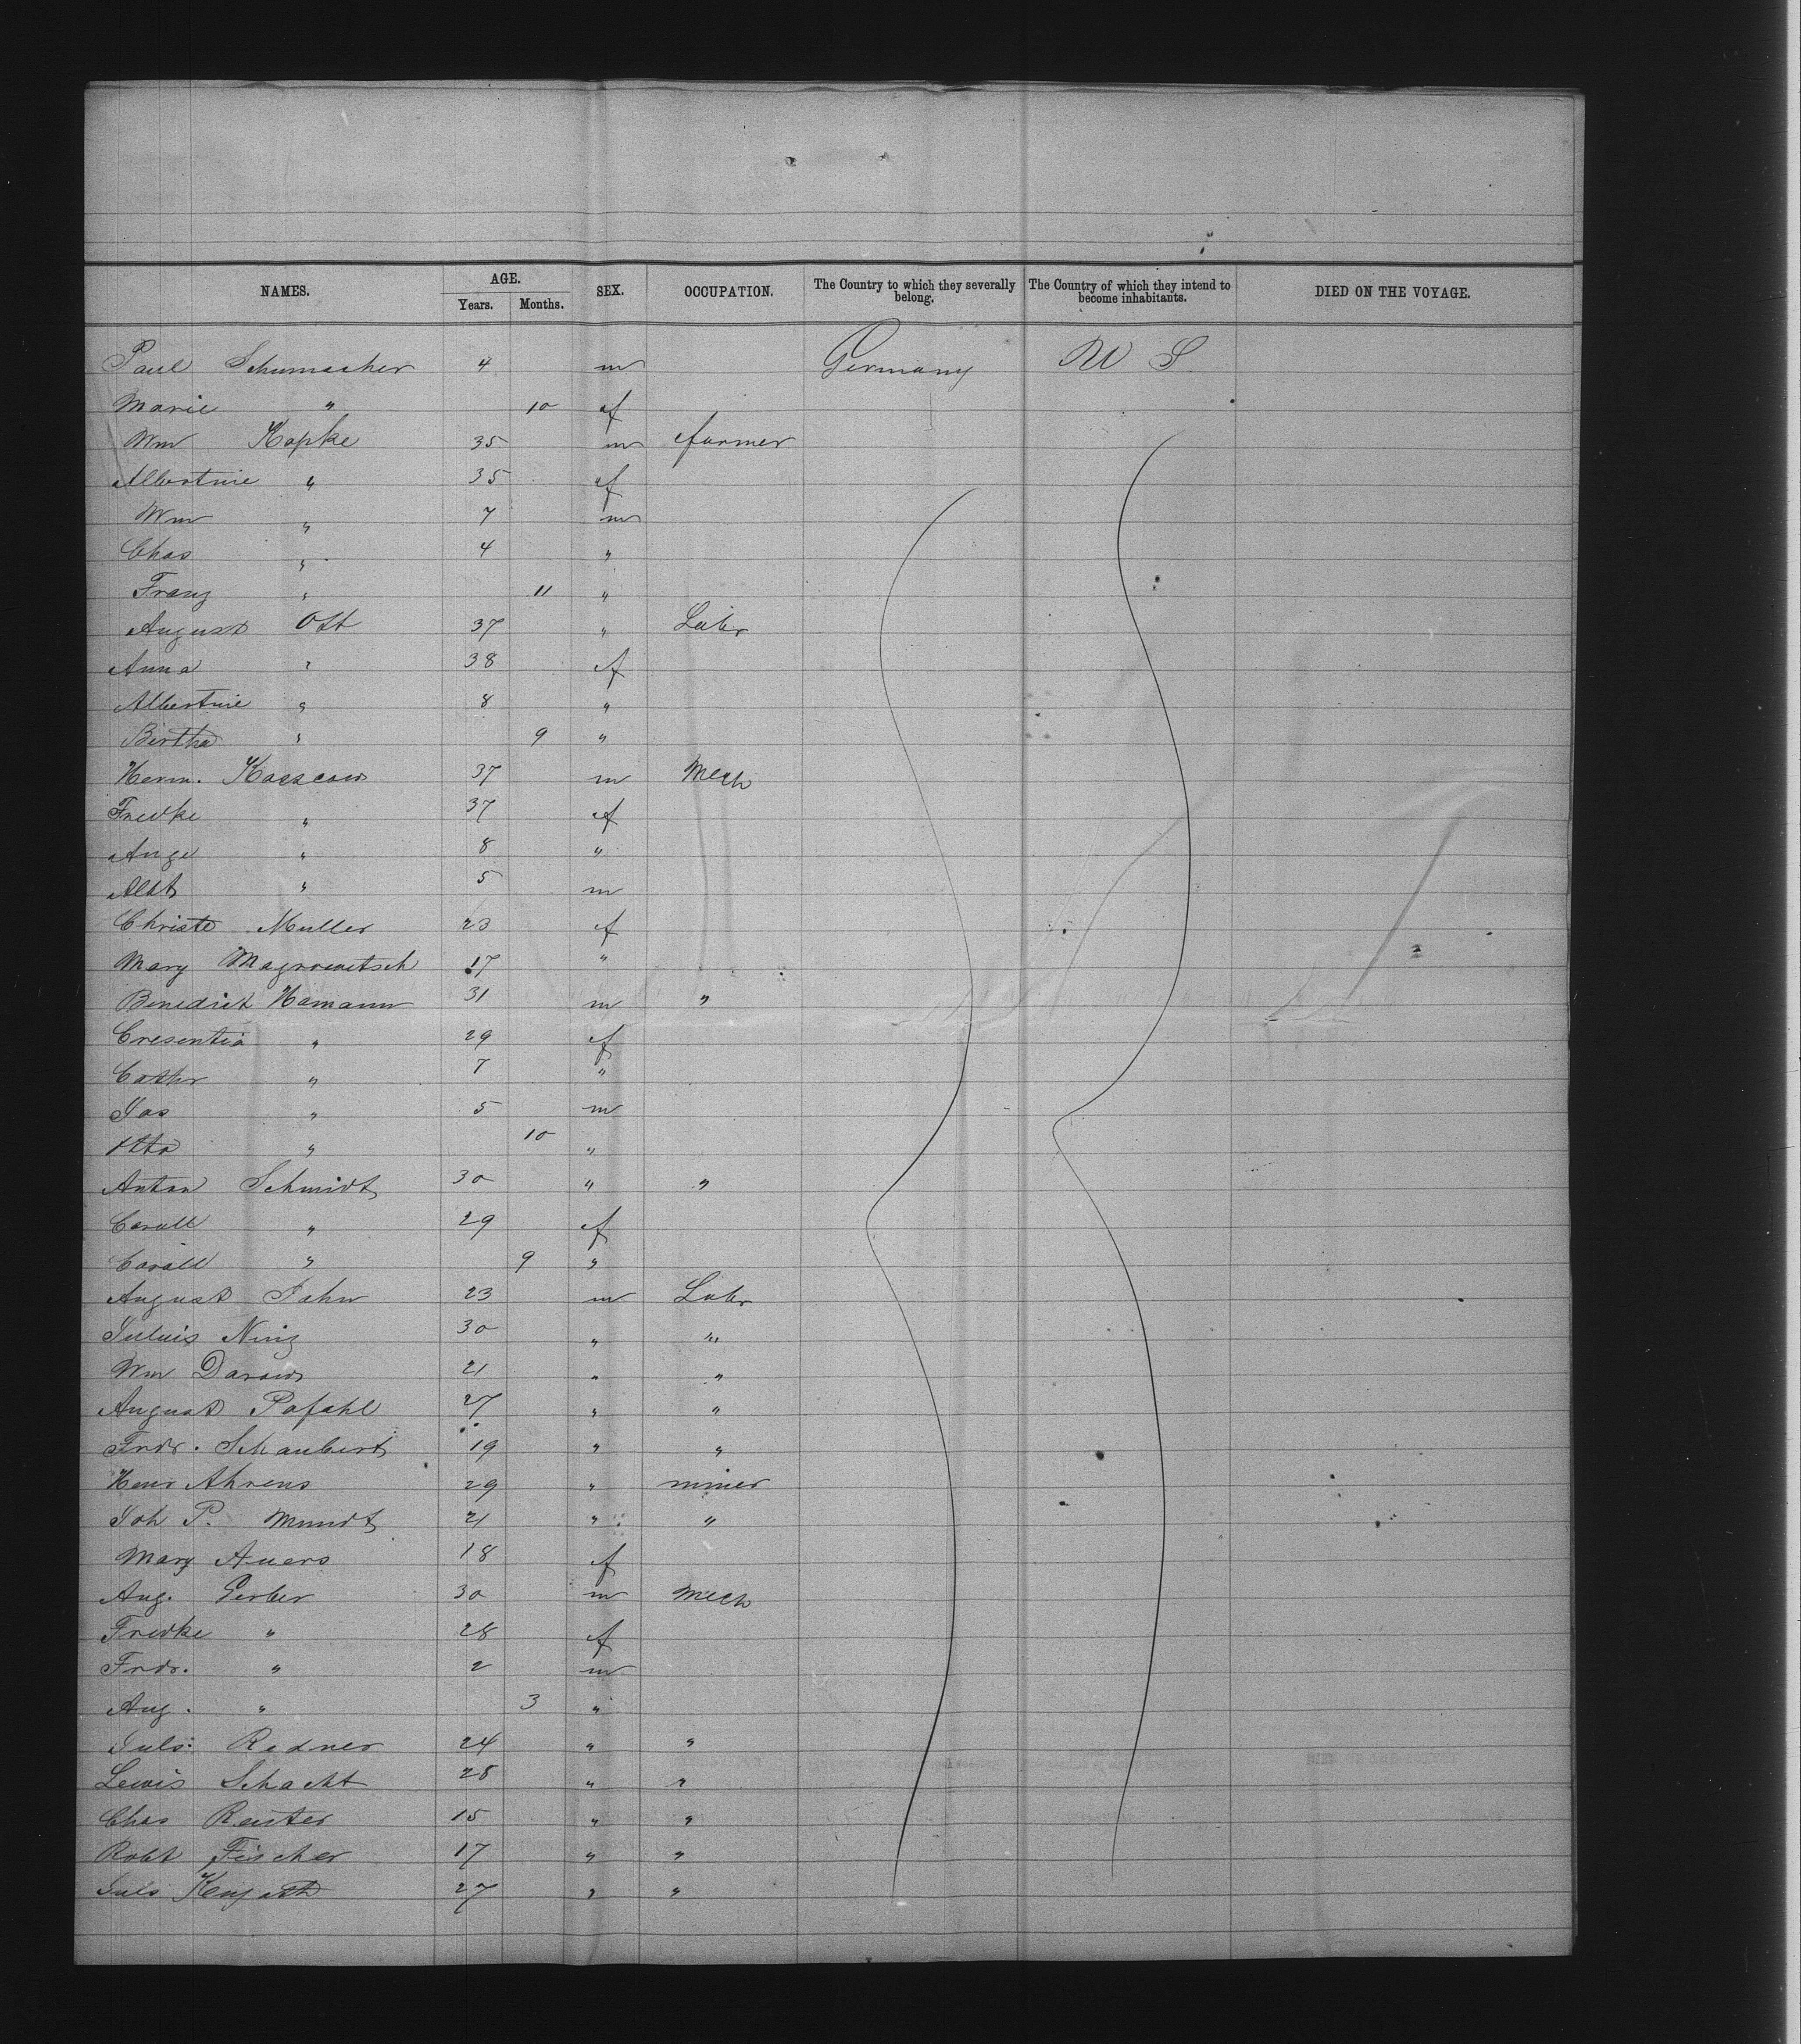 NAMES. AGE. SEX. OCCUPATION. The Country to which they severally belong. The Country of which they intend to become inhabitants. DIED ON THE VOYAGE.
Years. Months.
Paul Schumacher 4 m Germany U S
Marie " 10 f
Wm Kopke 35 m farmer
Albertine " 35 f
Wm " 7 m
Chas " 4 "
Franz " 11 "
August Ott 37 " Labr
Anna " 38 f
Albertine " 8 "
Bertha " 9 "
Herm. 37 m Mech
Fredke " 37 f
Auge " 8 "
Albt " 5 m
Christe Muller 23 f
Mary 17 "
Benedict Hamann 31 m "
Cresentia " 29 f
Cathr " 7 "
Jos " 5 m
Otto " 10 "
Anton Schmidt 30 " "
Caroll " 29 f
Caroll " 9 "
August Jahn 23 m Labr
Julius 30 " "
Wm Darow 21 " "
August Pafahl 27 " "
Frdr. Schaubert 19 " "
Henr Ahrens 29 " miner
Joh P. Mundt 21 " "
Mary Auers 18 f
Aug. Gerber 30 m Mech
Fredke " 28 f
Frdr. " 2 m
Aug. " 3 "
Juls. Redner 24 " "
Lewis Schacht 28 " "
Chas Reuter 15 " "
Robt Fischer 17 " "
Juls 27 " "